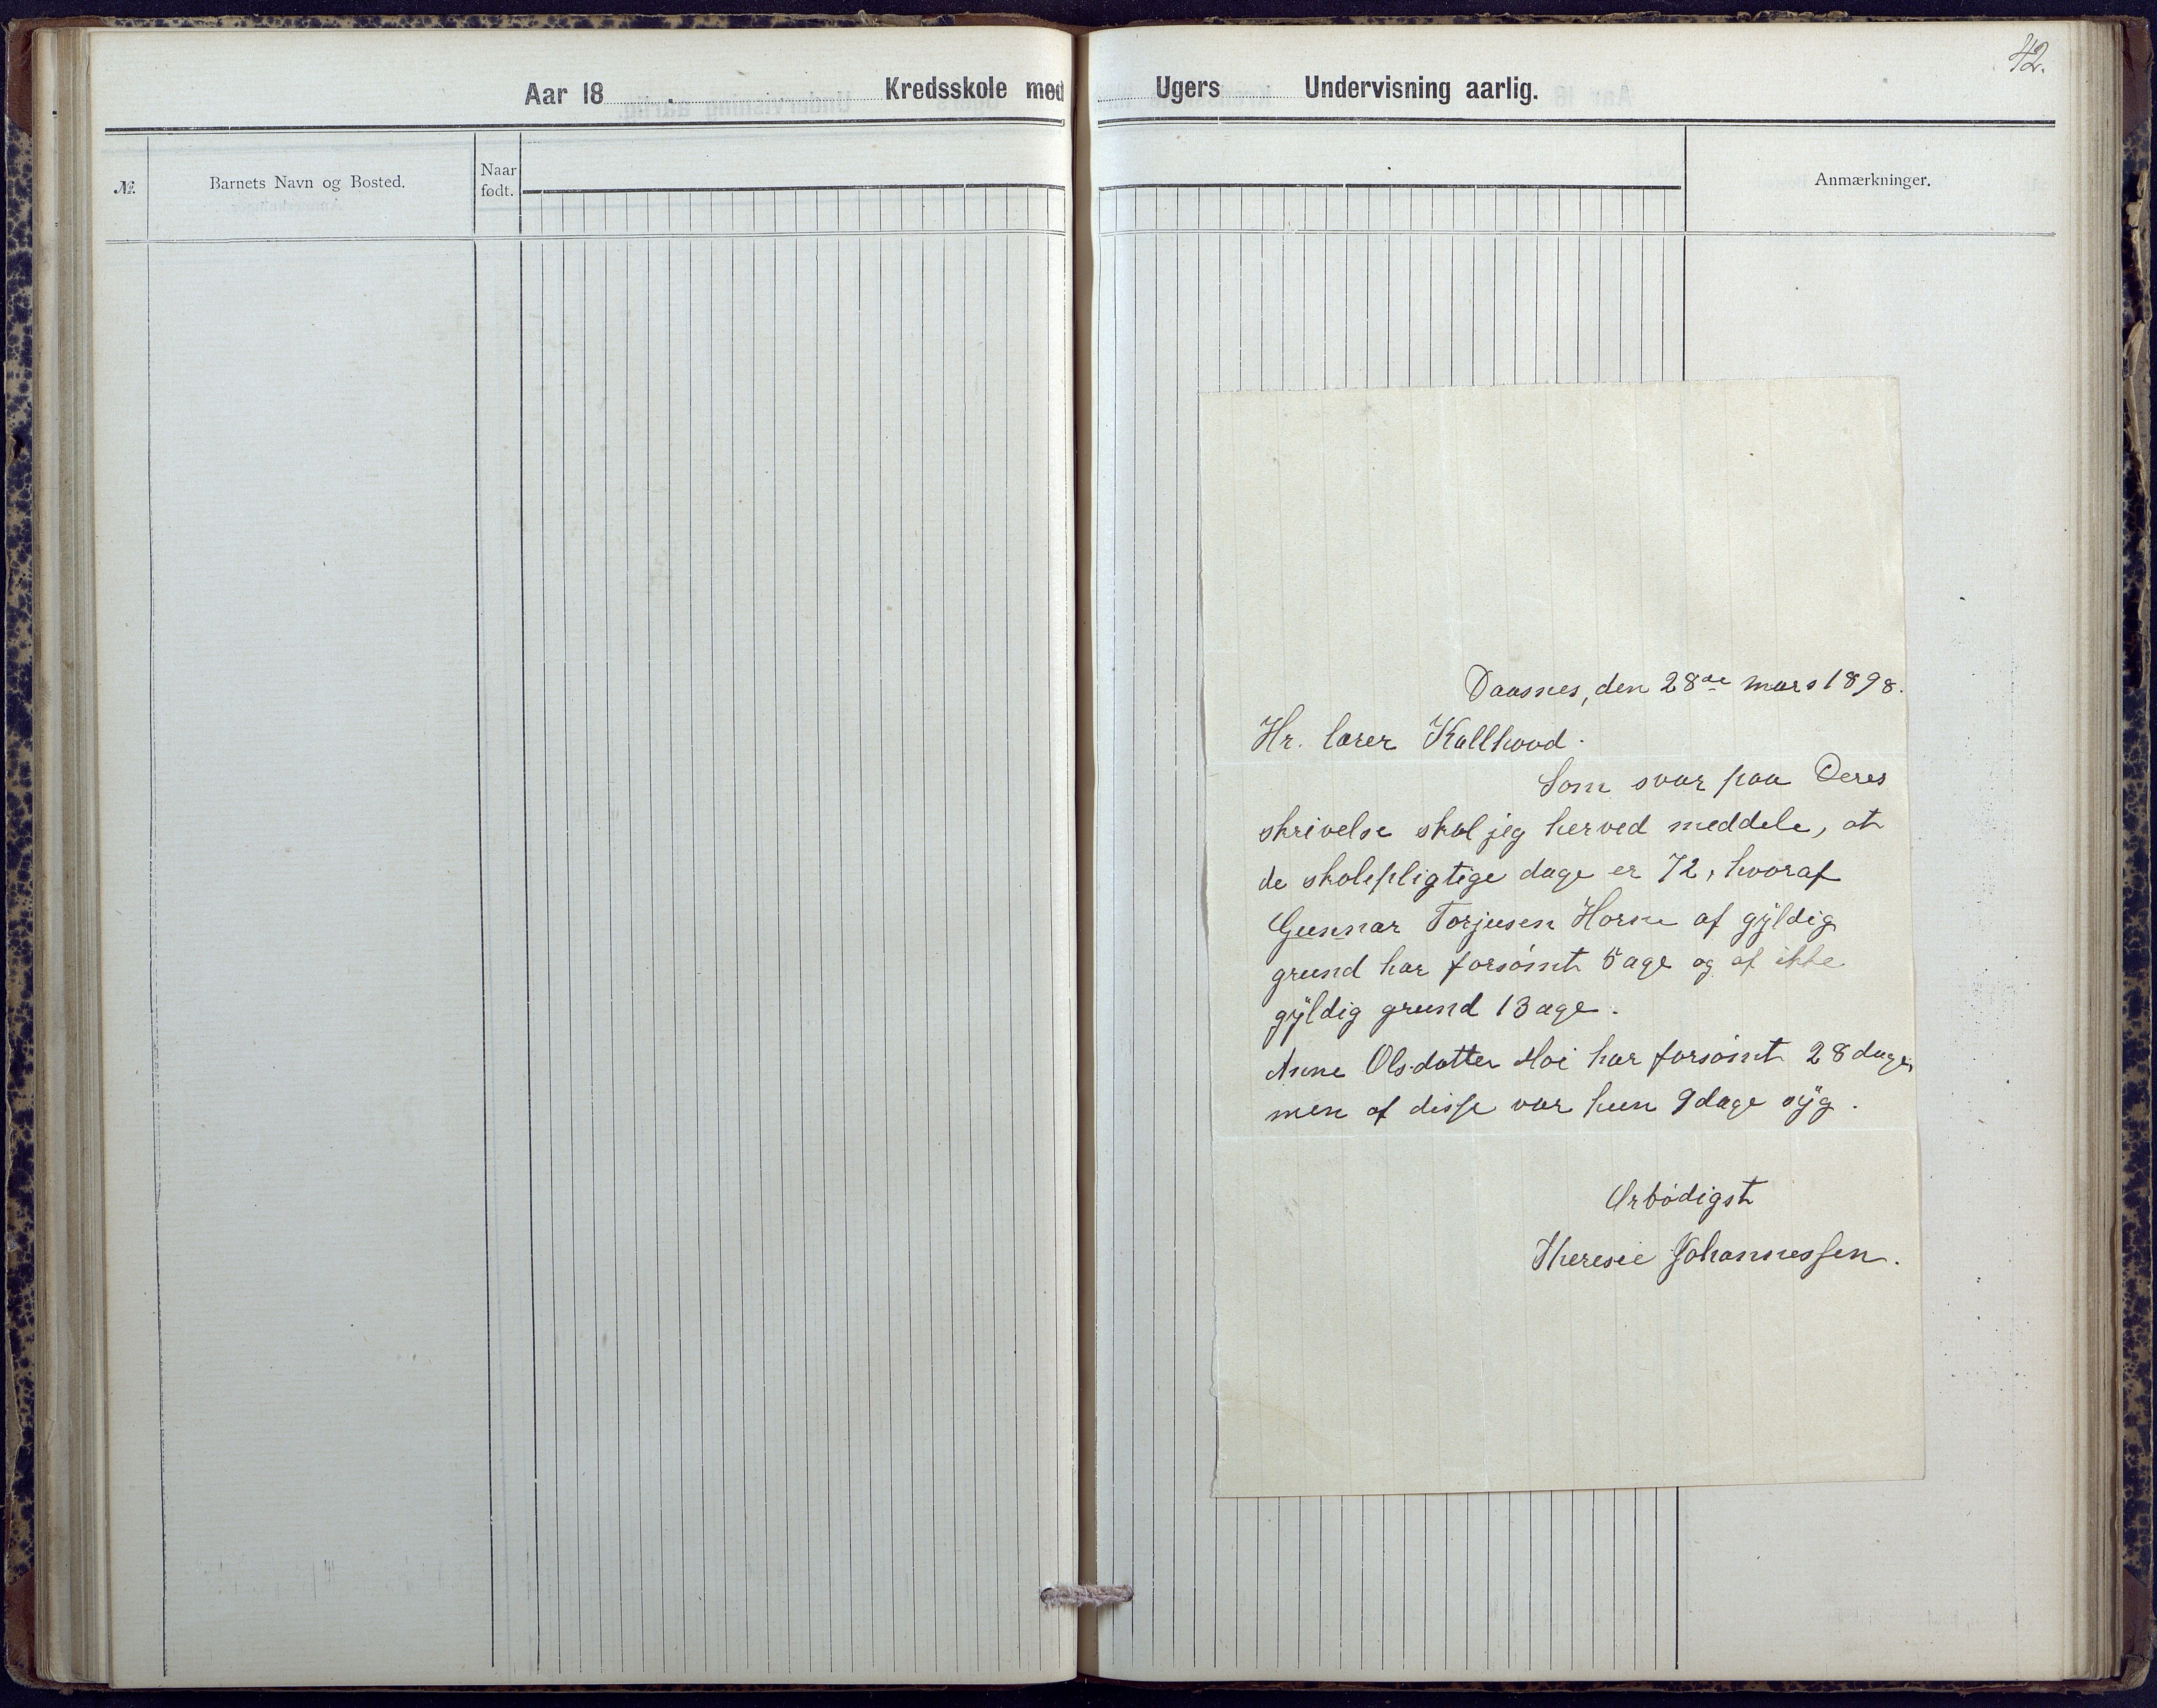 42.
Aar 18 Kredsskole med Ugers Undervisning aarlig.
№. Barnets Navn og Bosted. Naar født. Anmærkninger.
Daasnes, den 28de mars 1898.
Hr. lærer Kallhovd.
Som svar paa Deres
skrivelse skal jeg herved meddele, at
de skolepligtige dage er 72, hvoraf
Gunnar Torjusen Horne af gyldig
grund har forsømt 5 age og af ikke
gyldig grund 13 age.
Anne Olsdatter Moi har forsømt 28 dage,
men af disse var hun 9 dage syg.
Ærbødigst
Theresie Johannessen.